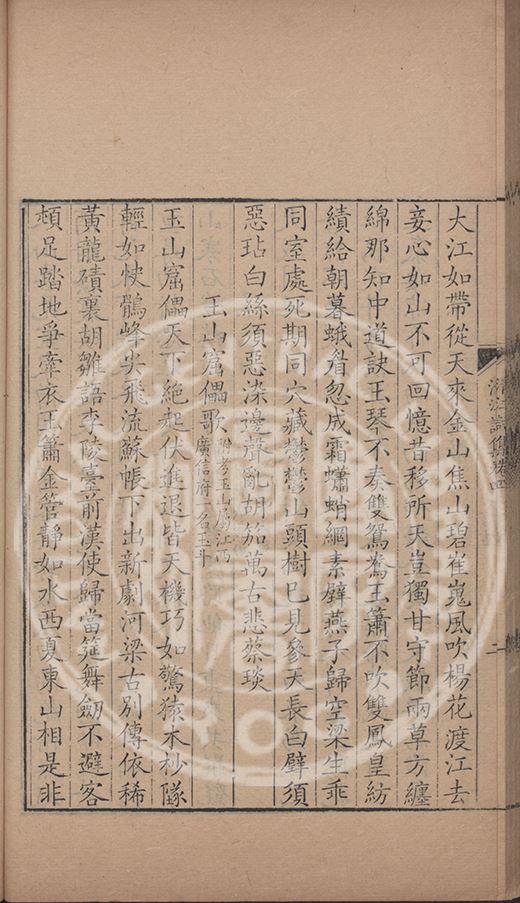 大江如帶從天來金山焦山碧崔嵬風吹楊花渡江去
妾心如山不可回憶昔移所天豈獨甘守節兩草方纏
綿那知中道訣玉琴不奏雙鴛鴦玉簫不吹雙鳳皇紡
績給朝暮蛾眉忽成霜蠨蛸網素壁燕子歸空梁生乖
同室處死期同穴藏鬱鬱山頭樹已見參天長白璧須
惡玷白絲須惡染邊聲亂胡笳萬古悲蔡琰
玉山窟儡歌附考玉山屬江西
廣信府一名玉斗
玉山窟儡天下絶起伏進退皆天機巧如驚猿木杪墜
輕如快鶻峰尖飛流蘇帳下出新劇河梁古别傳依稀
黃龍磧裏胡雛語李陵臺前漢使歸當筵舞劒不避客
頓足踏地爭牽衣玉簫金管靜如水西夏東山相是非
詩集
二